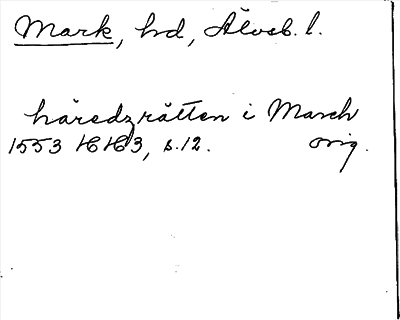 Mark, hd, Älvsb. l.
häredzrätten i March
1553 HH3, s.12. orig.